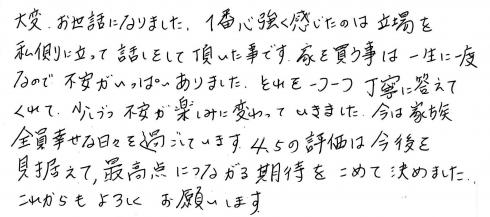 大変、お世話になりました。1番心強く感じたのは立場を
私側に立って話しをして頂いた事です。家を買う事は一生に一度
なので不安がいっぱいありました。それを一つ一つ丁寧に答えて
くれて、少しづつ不安が楽しみに変わっていきました。今は家族
全員幸せな日々を過ごしています。4.5の評価は今後を
見据えて、最高点につながる期待をこめて決めました。
これからもよろしくお願いします